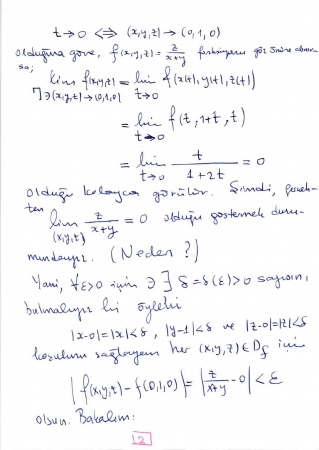 t→0 ⟺ (x,y,z) → (0,1,0)
olduğuna göre, f(x,y,z) = z/(x+y) fonksiyonu göz önüne alınır-
sa;
lim f(x,y,z) = lim f(x(t), y(t), z(t))
]∋(x,y,z)→(0,1,0) t→0
= lim f(t, 1+t, t)
t→0
= lim t/(1+2t) = 0
t→0
olduğu kolayca görülür. Şimdi, gerçek-
ten lim z/(x+y) = 0 olduğu göstermek duru-
(x,y,z)
mundayız. (Neden?)
Yani, ∀ε>0 için ∃ δ=δ(ε)>0 sayısını,
bulmalıyız ki öyleki
|x-0|=|x|<δ, |y-1|<δ ve |z-0|=|z|<δ
koşulunu sağlayan her (x,y,z)∈D_f için
|f(x,y,z) - f(0,1,0)| = |z/(x+y) - 0| < ε
olsun. Bakalım:
2